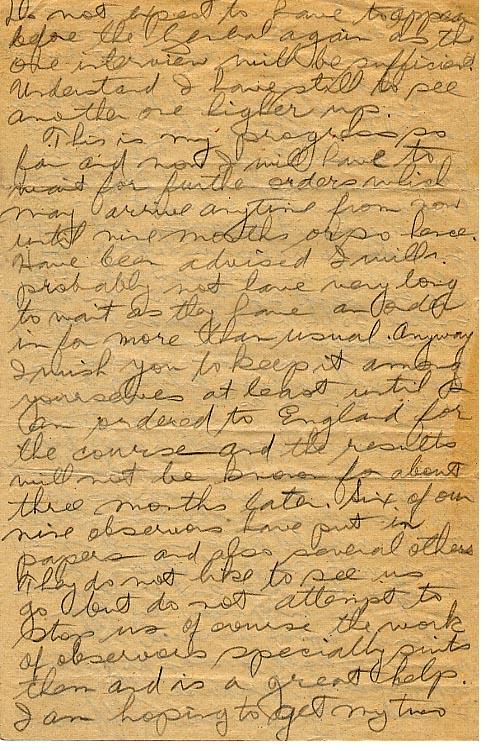 Do not expect to have to appear
before the General again as the
one interview will be sufficient.
Understand I have still to see
another one higher up.
This is my progress so
far and now I will have to
wait for further orders which
may arrive anytime from now
until nine months or so hence.
Have been advised I will
probably not have very long
to wait as they have an order
in for more than usual. Anyway
I wish you to keep it among
yourselves at least until I
am ordered to England for
the course and the results
will not be known for about
three months later. Six of our
nine observers have put in
papers and also several others
They do not like to see us
go but do not attempt to
stop us. Of course the work
of observers specially suits
them and is a great help.
I am hoping to get my two